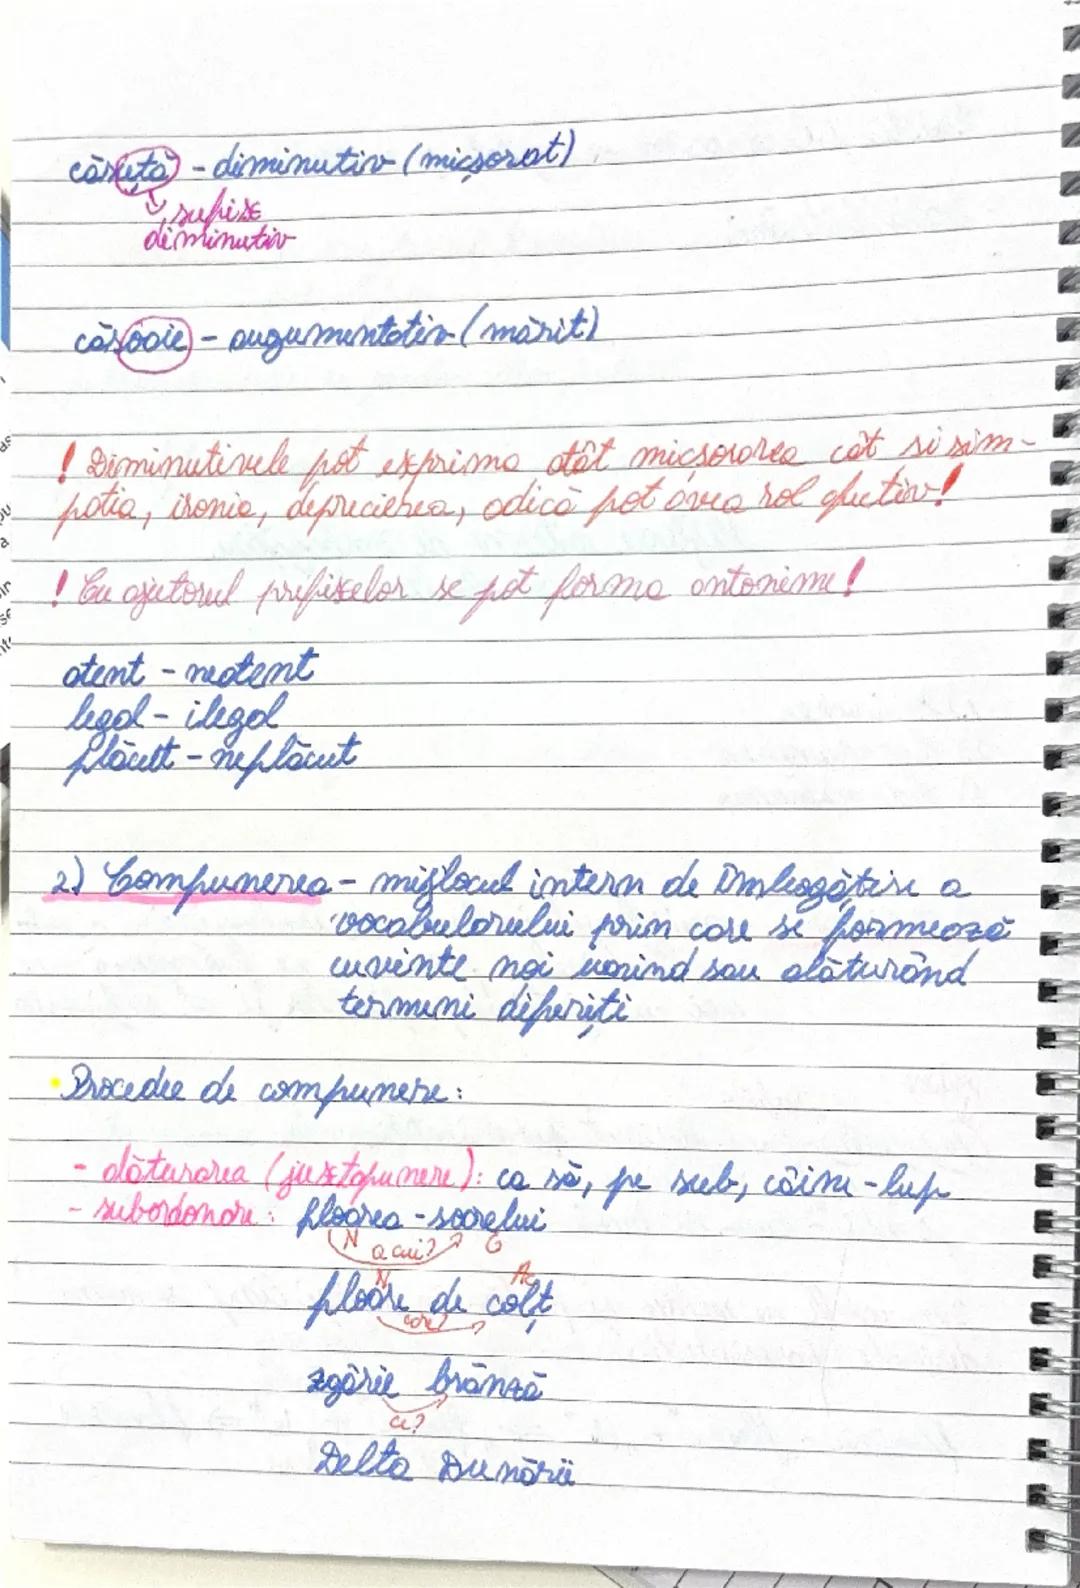 căsuță - diminutiv (micșorat)
sufix
diminutiv
căsoaie - augumentativ (mărit)
! Diminutivele pot exprima atât micșorarea cât si sim-
patia, ironia, deprecierea, adică pot avea rol afectiv!
! Cu ajutorul prefixelor se pot forma antonime!
atent - neatent
legal - ilegal
plăcut - neplăcut
2) Compunerea - mijlocul intern de îmbogățire a
vocabularului prin care se formează
cuvinte noi unind sau alăturând
termeni diferiți
• Procedee de compunere:
- alăturarea (juxtapunere): ca să, pe sub, câine-lup
- subordonare: floarea-soarelui
N a cui? G
floare de colț
N care? Ac
zgârie brânză
ce?
Delta Dunării